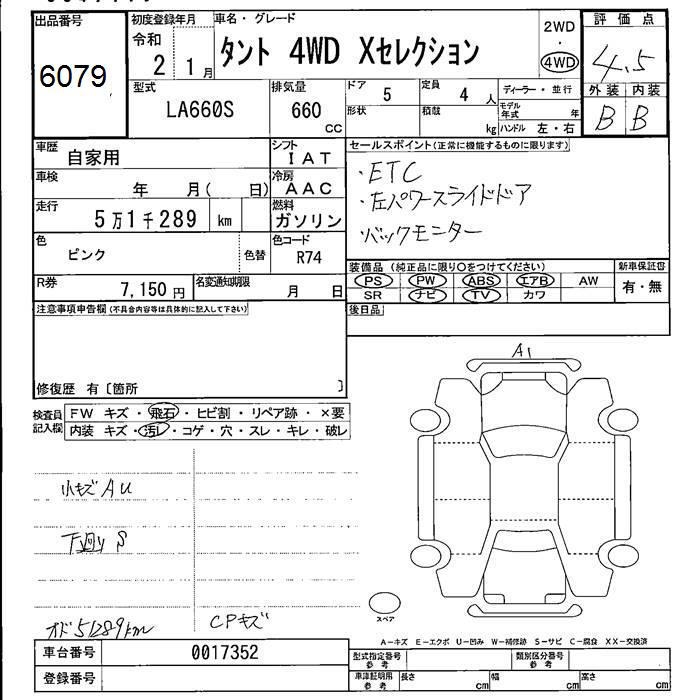 出品番号 初度登録年月 車名・グレード 2WD・4WD 評価点
6079 令和 2 1月 タント 4WD Xセレクション 4.5
型式 LA660S 排気量 660 cc ドア 5 定員 4 人 ディーラー・並行 外装 内装
形状 積載 kg モデル年式 年 ハンドル 左・右 B B
車歴 自家用 シフト IAT セールスポイント(正常に機能するものに限ります)
車検 年 月( 日) 冷房 AAC ・ETC
走行 5万1千289 km 燃料 ガソリン ・左パワースライドドア
色 ピンク 色替 色コード R74 ・バックモニター
R券 7,150円 名変通知期限 月 日 装備品(純正品に限り〇をつけてください) 新車保証書
PS PW ABS エアB AW 有・無
SR ナビ TV カワ
注意事項申告欄(不具合内容等は具体的に記入して下さい) 後日品
修復歴 有〔箇所 〕
A1
検査員記入欄 FW キズ・飛石・ヒビ割・リペア跡・×要
内装 キズ・汚レ・コゲ・穴・スレ・キレ・破レ
小キズAU
下廻りS
オド51289km CPキズ
スペア
A-キズ E-エクボ U-凹み W-補修跡 S-サビ C-腐食 XX-交換済
車台番号 0017352 型式指定番号 参考 類別区分番号 参考
登録番号 車庫証明用 参考 長さ cm 幅 cm 高さ cm